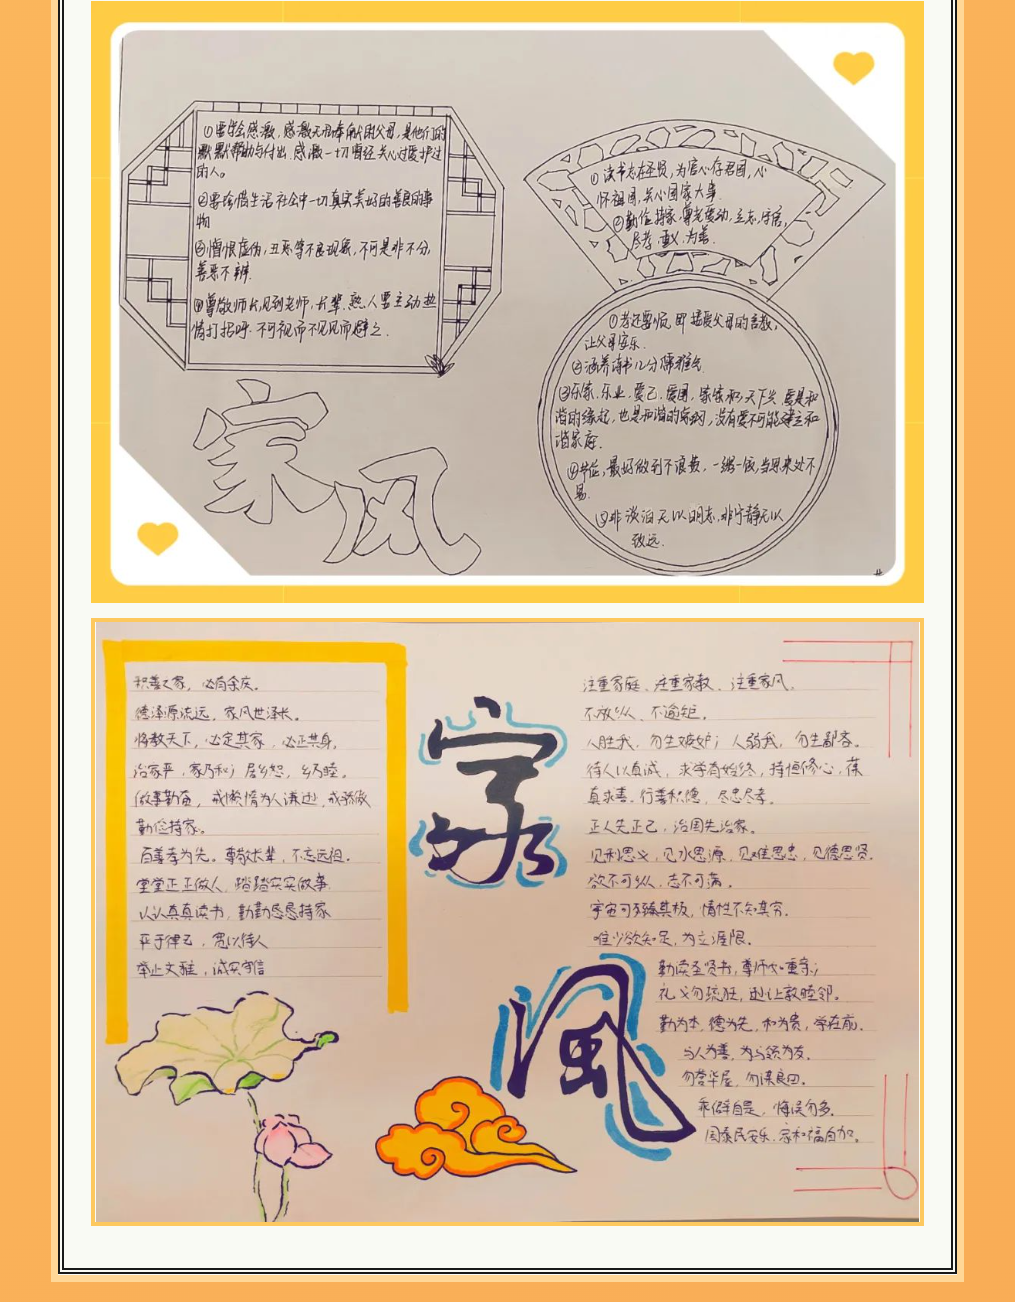 ①要学会感激,感激无私奉献的父母,是他们的
默默帮助与付出.感激一切曾经关心过爱护过
的人。
②要珍惜生活社会中一切真实美好的善良的事
物
③憎恨虚伪,丑恶等不良现象,不可是非不分,
善恶不辨.
④尊敬师长,见到老师,长辈.熟人要主动热
情打招呼.不可视而不见见而避之.
家风
①读书志在圣贤,为官心存君国,心
怀祖国,关心国家大事.
②勤俭持家.尊老爱幼,立志,守信,
尽孝.重义,为善.
让父母安乐.
②涵养诗书几分儒雅气
③乐家.乐业.爱己.爱国,家家和,天下兴.爱是和
谐的缘起,也是和谐的真纲,没有爱不可能建立和
谐家庭.
④节俭,最好做到不浪费,一粥一饭,当思来处不
易.
⑤非淡泊无以明志,非宁静无以
致远.
积善之家,必有余庆。
德泽源流远,家风世泽长。
将教天下,必定其家,必正其身,
治家严,家乃和;居乡恕,乡乃睦。
做事勤奋,戒懒惰为人谦逊,戒骄傲
勤俭持家。
百善孝为先。尊敬长辈,不忘远祖。
堂堂正正做人,踏踏实实做事.
认认真真读书,勤勤恳恳持家
严于律己,宽以待人
举止文雅,诚实守信
家
風
注重家庭、注重家教、注重家风,
不放纵、不逾矩。
人胜我,勿生嫉妒;人弱我,勿生鄙吝。
待人以真诚,求学有始终,持恒修心,葆
真求善.行善积德,尽忠尽孝。
正人先正己,治国先治家。
见利思义,见水思源,见难思忠,见德思贤.
欲不可纵,志不可满。
宇宙可臻其极,情性不知其穷。
唯少欲知足,为立涯限。
勤读圣贤书,尊师如重亲;
礼义勿疏狂,逊让敦睦邻。
勤为本,德为先,和为贵,学在前.
与人为善,为与领为友.
勿营华屋,勿谋良田。
乖僻自是,悔误勿多.
国泰民安乐,家和福自加。